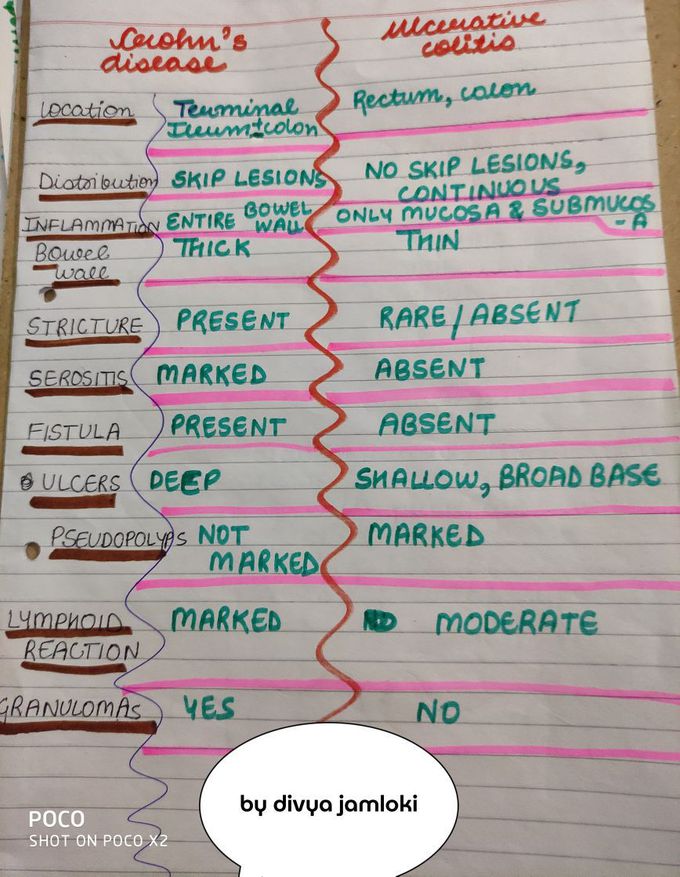 Crohn's disease
ulcerative colitis
Location Terminal Ileum±colon Rectum, colon
Distribution SKIP LESIONS NO SKIP LESIONS, CONTINUOUS
INFLAMMATION ENTIRE BOWEL WALL ONLY MUCOSA & SUBMUCOS-A
Bowel wall THICK THIN
STRICTURE PRESENT RARE/ABSENT
SEROSITIS MARKED ABSENT
FISTULA PRESENT ABSENT
ULCERS DEEP SHALLOW, BROAD BASE
PSEUDOPOLYPS NOT MARKED MARKED
LYMPHOID REACTION MARKED MODERATE
GRANULOMAS YES NO
by divya jamloki
POCO
SHOT ON POCO X2